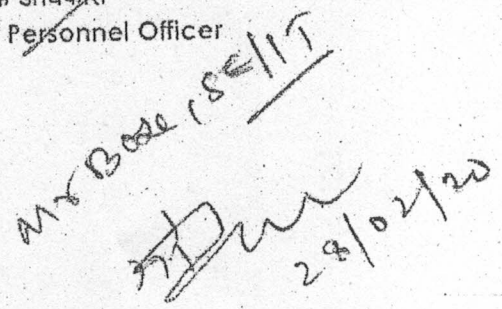 Personnel Officer
Mr Bose, SE/IT
28/02/20